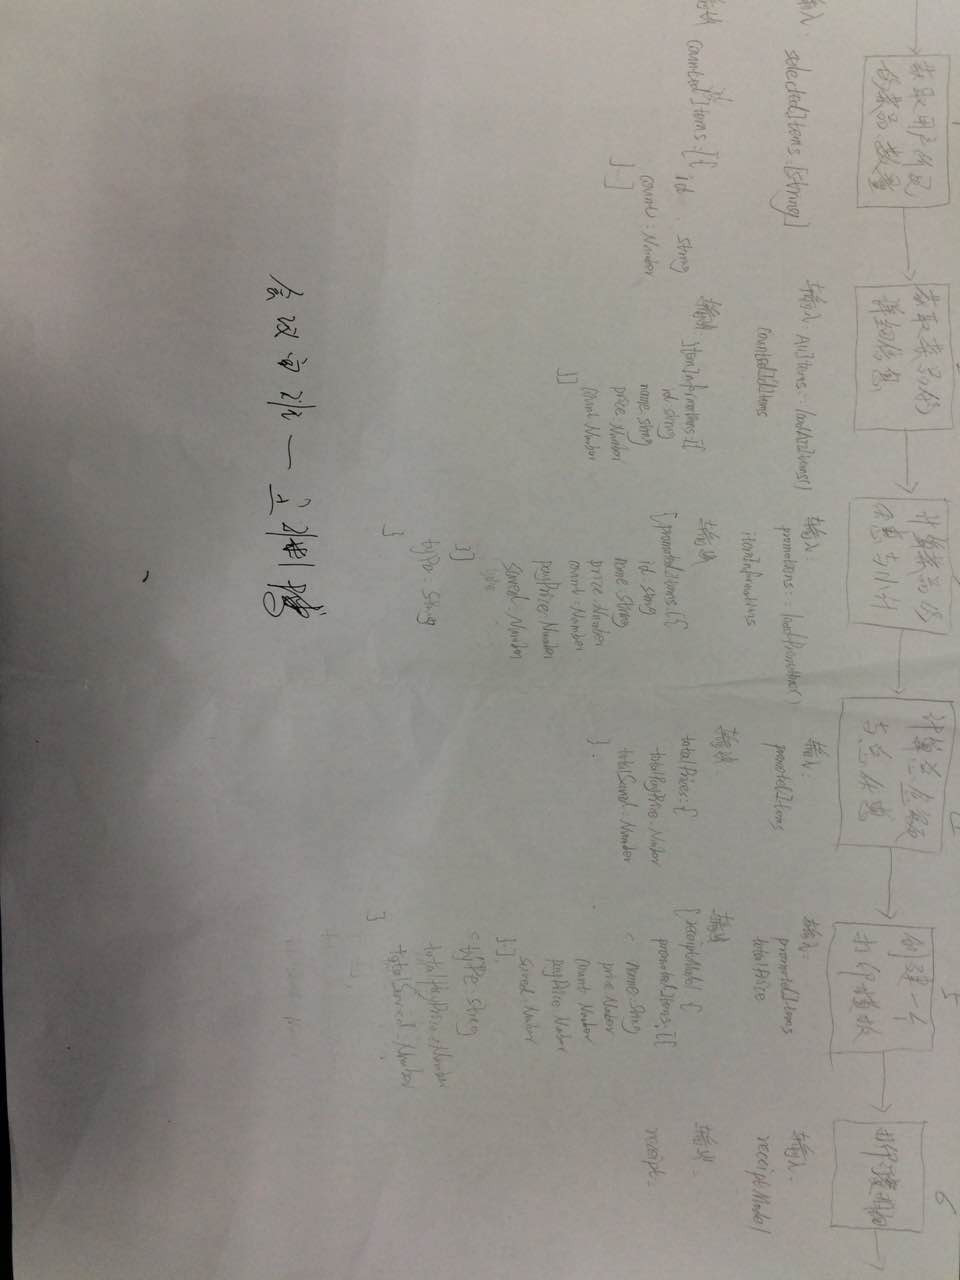 1
获取用户购买
的菜品数量
输入: selectedItems:[string]
输出 countedItems:[{
id: string
count: Number
}...]
获取菜品的
详细信息
输入: AllItems = loadAllItems()
countedItems
输出: ItemInformations:[{
id: string
name: string
price: Number
count: Number
}]
计算菜品的
优惠与小计
输入:
promotions: = loadPromotions()
itemInformations
输出
{promotedItems:[{
id: string
name: string
price: Number
count: Number
payPrice: Number
saved: Number
}]
type: string
}
计算总金额
与总优惠
输入:
promotedItems
输出:
totalPrices:{
totalPayPrice: Number
totalSaved: Number
}
5
创建一个
打印模板
输入:
promotedItems
totalPrice
输出
{receiptModel {
promotedItems:[{
name: string
price: Number
count: Number
payPrice: Number
saved: Number
}..],
type: string
totalPayPrice: Number
totalSaved: Number
}
6
输入:
receiptModel
输出:
receipt: